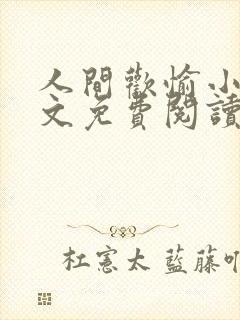 人間歡愉小
文免費閱讀
杜憲太 藍藤